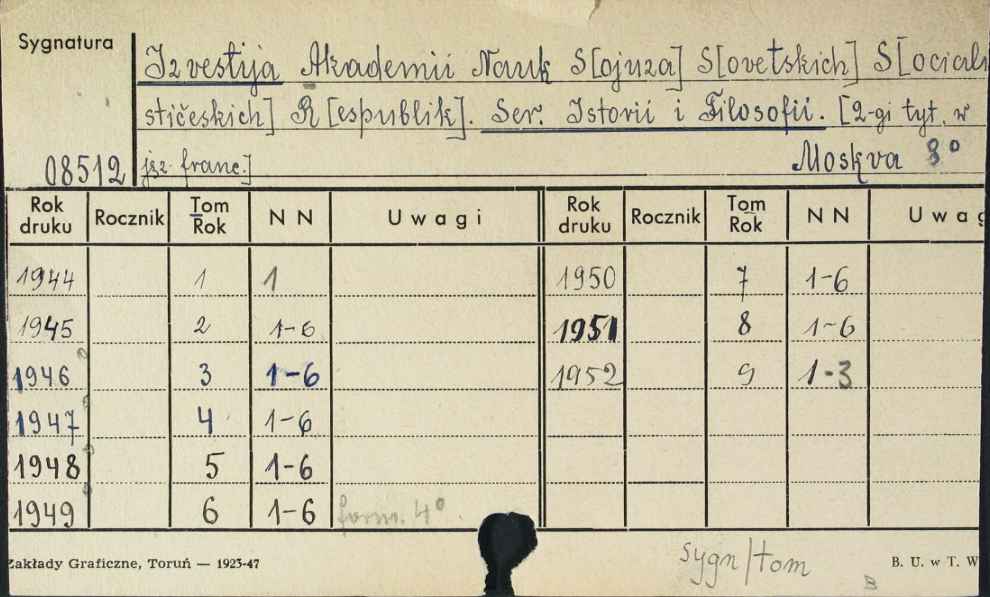 Sygnatura
Izvestija Akademii Nauk S[ojuza] S[ovetskich] S[ociali
stičeskich] R[espublik]. Ser. Istorii i Filosofii. [2-gi tyt. w
08512 jęz. franc.] Moskva 8°
Rok druku Rocznik Tom Rok N N Uwagi Rok druku Rocznik Tom Rok N N Uwag
1944 1 1 1950 7 1-6
1945 2 1-6 1951 8 1-6
1946 3 1-6 1952 9 1-3
1947 4 1-6
1948 5 1-6
1949 6 1-6 form. 4°.
sygn/tom
Zakłady Graficzne, Toruń — 1923-47 B. U. w T. W
B